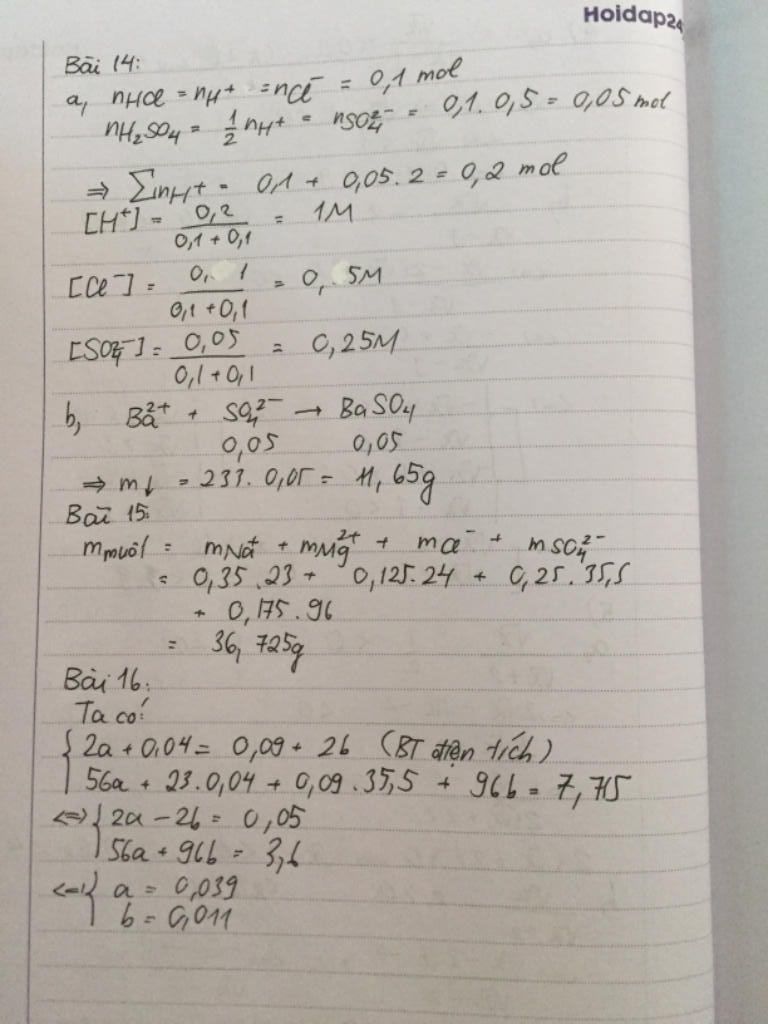 Hoidap24
Bài 14:
a, nHCl = nH⁺ = nCl⁻ = 0,1 mol
nH₂SO₄ = 1/2 nH⁺ = nSO₄²⁻ = 0,1. 0,5 = 0,05 mol
⇒ ΣnH⁺ = 0,1 + 0,05. 2 = 0,2 mol
[H⁺] = 0,2 / (0,1 + 0,1) = 1M
[Cl⁻] = 0,1 / (0,1 + 0,1) = 0,5M
[SO₄²⁻] = 0,05 / (0,1 + 0,1) = 0,25M
b, Ba²⁺ + SO₄²⁻ → BaSO₄
0,05 0,05
⇒ m↓ = 233. 0,05 = 11,65g
Bài 15:
mmuối = mNa⁺ + mMg²⁺ + mCl⁻ + mSO₄²⁻
= 0,35 .23 + 0,125. 24 + 0,25. 35,5
+ 0,175 . 96
= 36,725g
Bài 16:
Ta có:
{ 2a + 0,04 = 0,09 + 2b (BT điện tích)
56a + 23. 0,04 + 0,09 . 35,5 + 96b = 7,715
<=> { 2a - 2b = 0,05
56a + 96b = 3,6
<=> { a = 0,039
b = 0,011